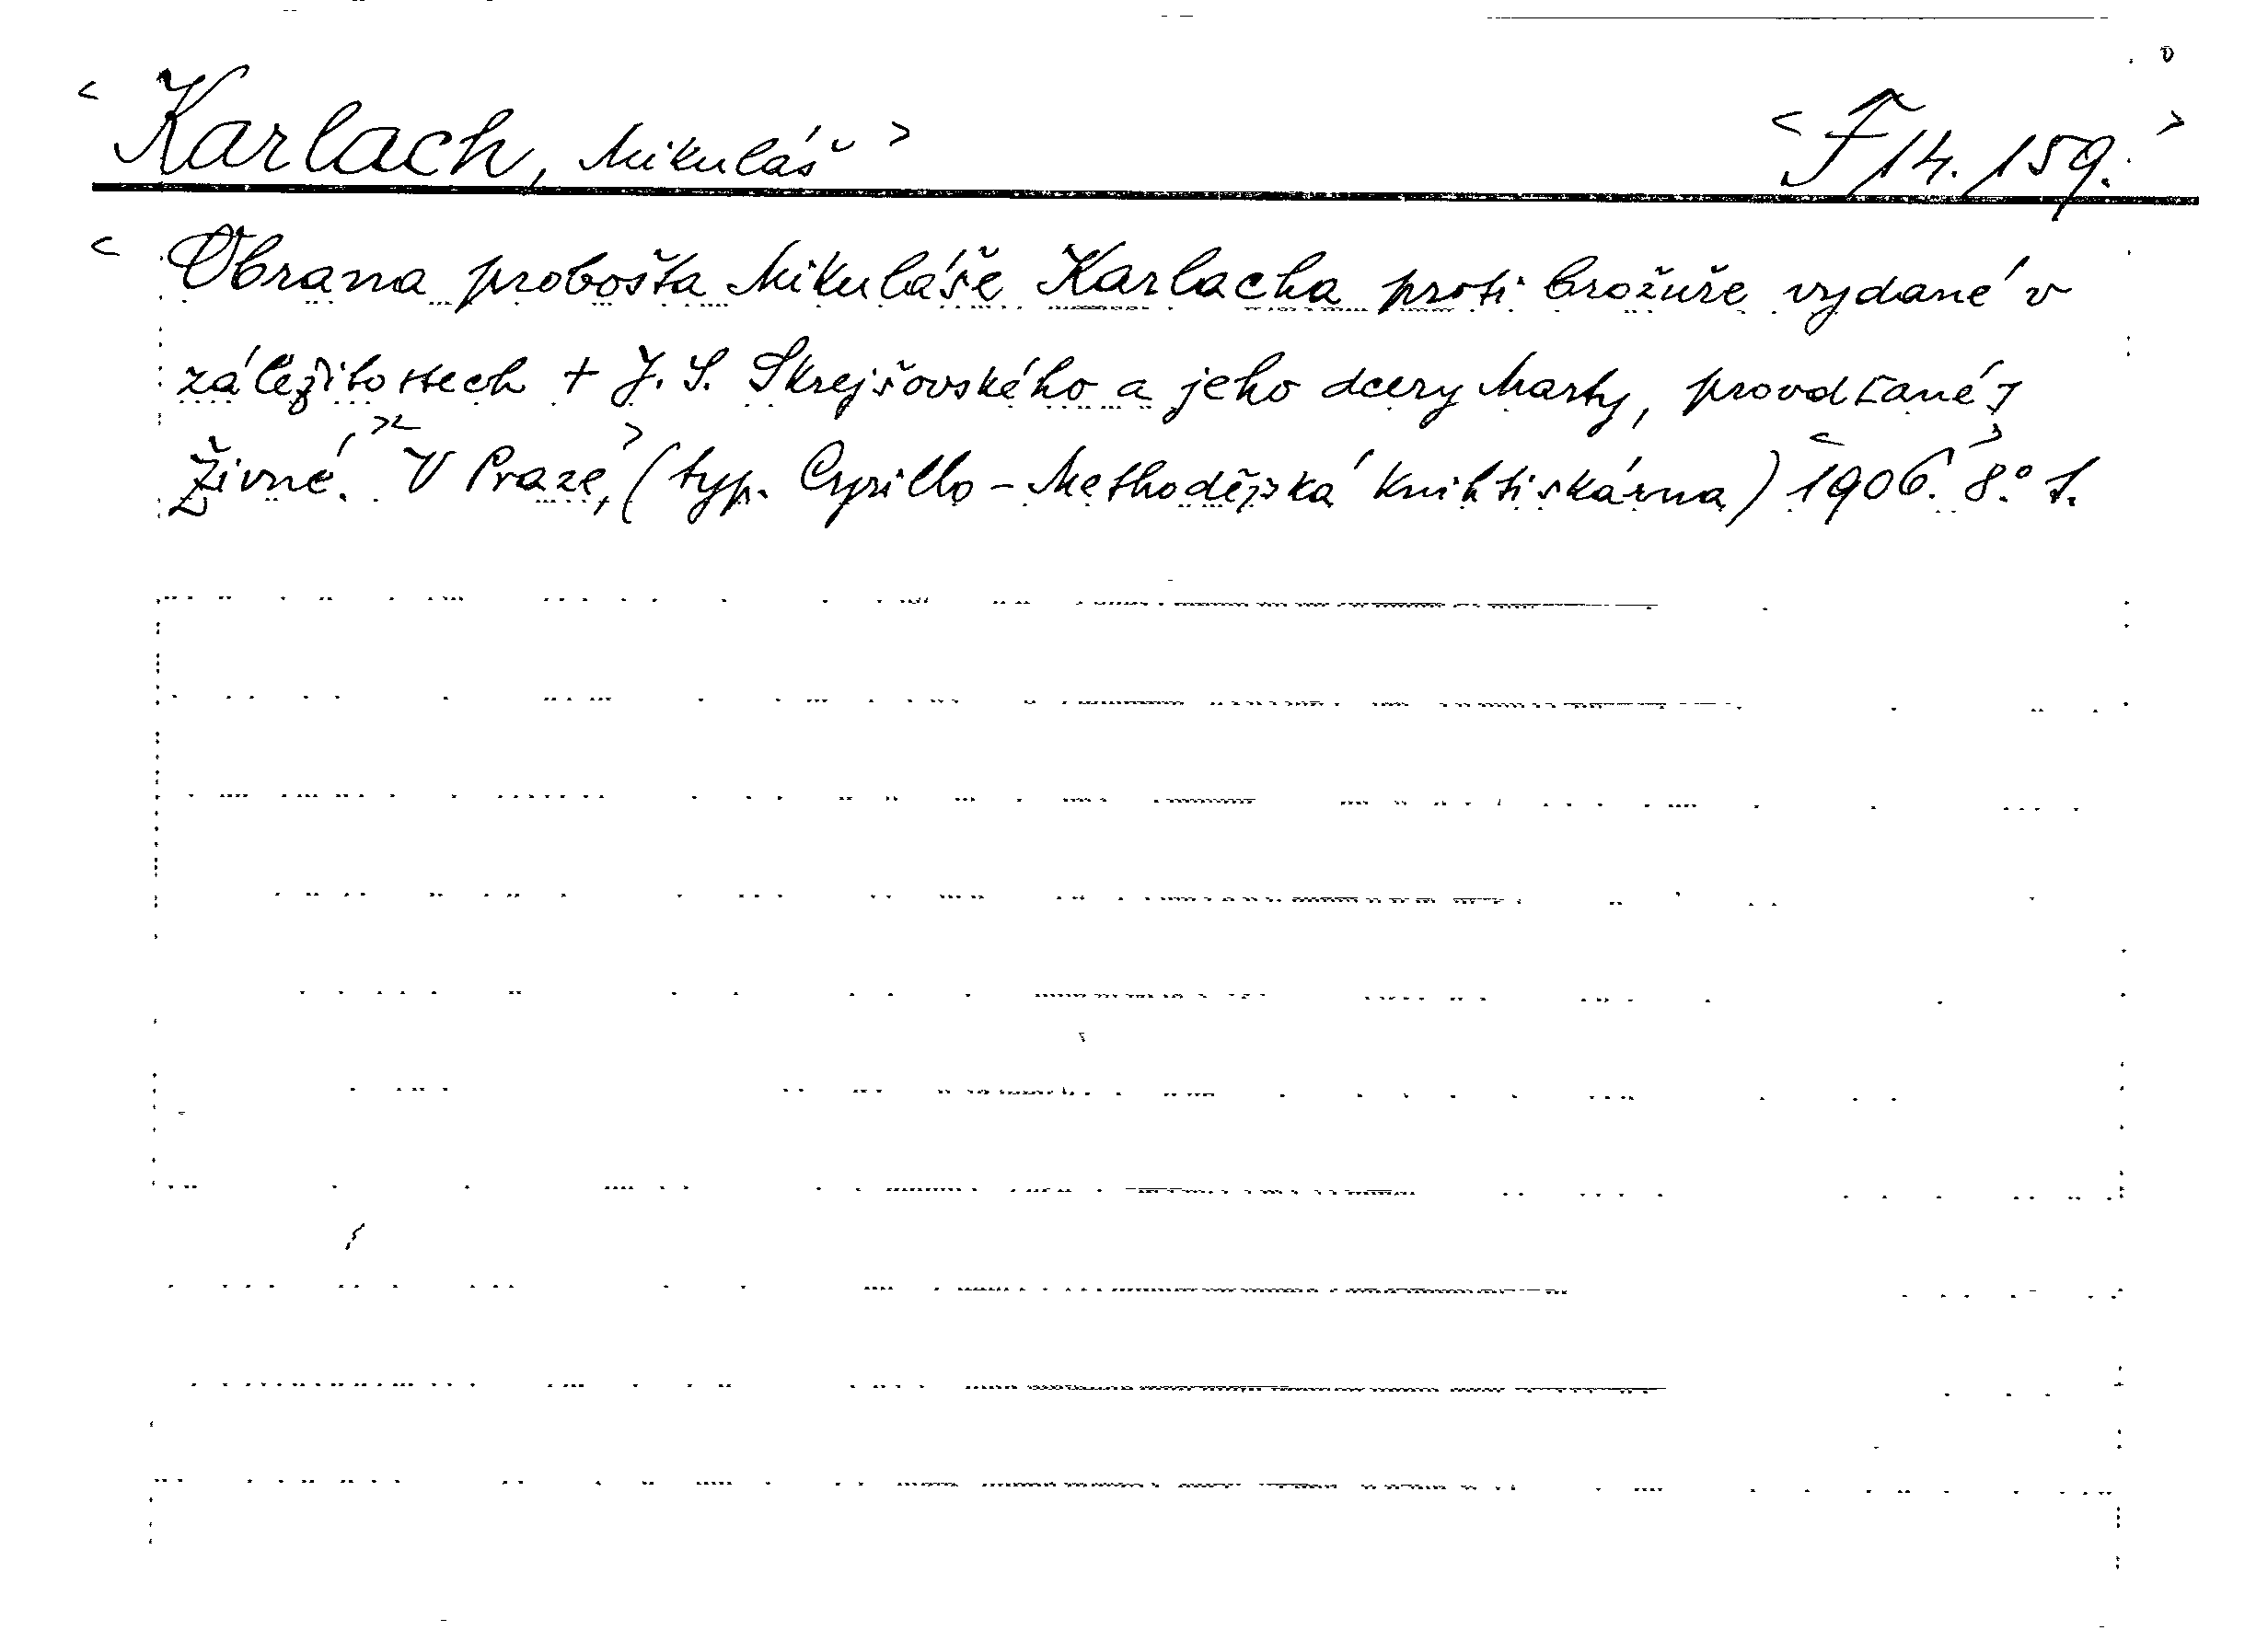 < Karlach, Mikuláš > < F 14. 159. >
< Obrana probošta Mikuláše Karlacha proti brožuře vydané v
záležitostech + J. S. Skrejšovského a jeho dcery Marty, provdané
Živné. >< V Praze, > (typ. Cyrillo-Methodějská knihtiskárna) < 1906. > 8.°